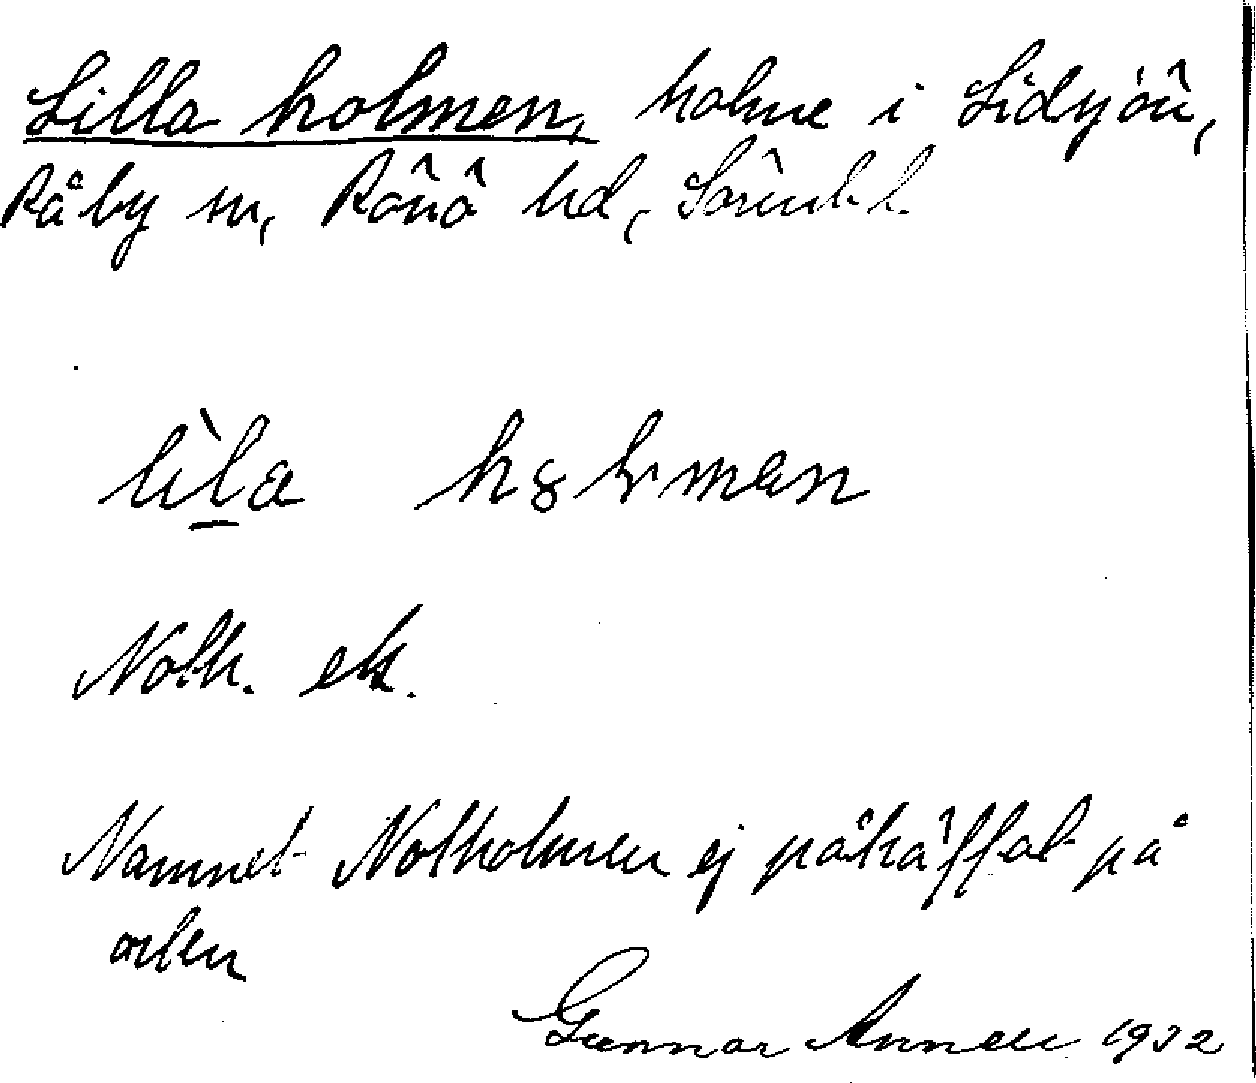 Lilla holmen, holme i Lidsjön,
Råby sn, Rönö hd, Sörml l.
lìla hȣlmen
Noth. ek.
Namnet Notholmen ej påträffat på
orten
Gunnar Annell 1932